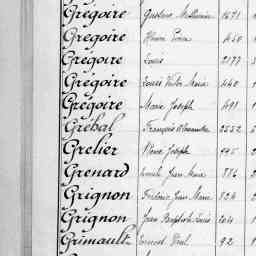 Grégoire Gustave 1671
Grégoire Henri 450
Grégoire Louis 2177
Grégoire Louis Victor Marie 440
Grégoire Marie Joseph 491
Gréhal François Alexandre 2552
Grelier Pierre Joseph 995
Grenard Louis Jean Marie
Grignon Frédéric Jean Marie 124
Grignon Jean Baptiste Louis
Grimault Ernest Paul 92